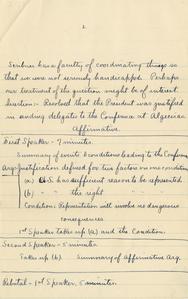 2
Scribner has a faculty of coordinating things so
that we were not seriously handicapped. Perhaps
our treatment of the question might be of interest.
Question:- Resolved that the President was justified
in sending delegates to the Conference at Algeciras
Affirmative.
First Speaker - 7 minutes
Summary of events & conditions leading to the Conference
Arg. Justification defined for two factors on one condition
(a) U.S. has sufficient reason to be represented
(b) " " the right "
Condition: Representation will involve no dangerous
consequences
1st Speaker takes up (a) and the Condition.
Second Speaker - 5 minutes
Takes up (b). Summary of affirmative arg.
Rebuttal - 1st Speaker, 5 minutes